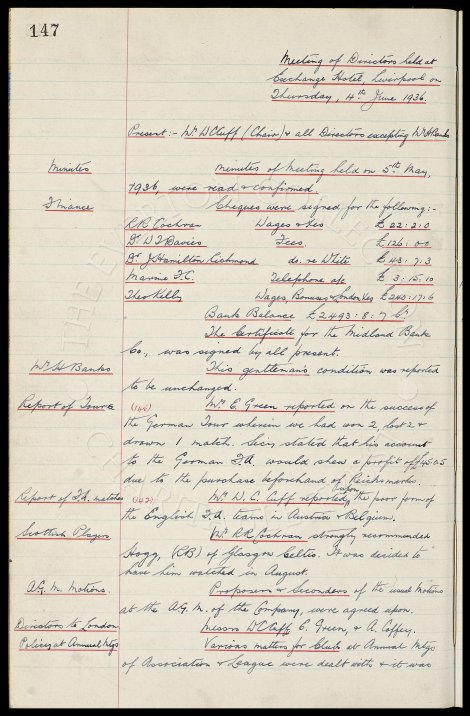 147
Meeting of Directors held at
Exchange Hotel, Liverpool on
Thursday, 4th June 1936.
Present:- Mr W Cuff (Chair) & all Directors excepting Mr H Banks
Minutes
Minutes of Meeting held on 5th May,
1936, were read & confirmed.
Finance
Cheques were signed for the following:-
R R Cochran Wages & Xes £ 22:2:0
Dr. W J Davies Fees, £ 126:0:0
Dr J Hamilton Richmond do. re White £ 43:7:3
Marine F.C. Telephone a/c £ 3:15:10
Theo Kelly Wages, Bonuses & London Xes £ 243:17:6
Bank Balance £2493:8:7 Cr
The Certificate for the Midland Bank
Co., was signed by all present.
Mr H Banks
This gentleman's condition was reported
to be unchanged.
Report of Tours
(146) Mr. E. Green reported on the success of
the German Tour wherein we had won 2, lost 2 &
drawn 1 match. Secy. stated that his account
to the German F.A. would shew a profit of
due to the purchase beforehand of Reichsmarks.
Report of F.A. matches
(142) Mr W. C. Cuff reported upon the poor form of
the English F.A. teams in Austria & Belgium.
Scottish Player
Mr R R Cochran strongly recommended
Hogg, (RB) of Glasgow Celtic. It was decided to
have him watched in August.
A.G.M. Motions.
Proposers & Seconders of the usual Motions
at the A.G.M. of the Company, were agreed upon.
Directors to London
Messrs W C Cuff E. Green, & A. Coffey.
Policy at Annual Mtgs
Various matters for Club at Annual Mtgs
of Association & League were dealt with & it was